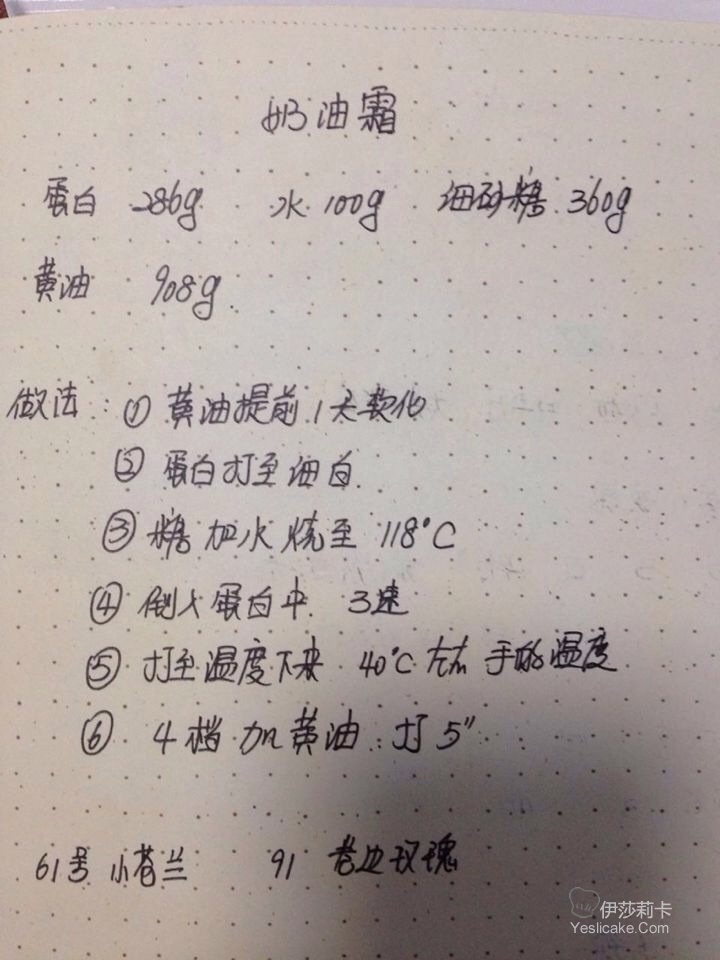 奶油霜
蛋白 286g 水 100g 细砂糖 360g
黄油 908g
做法: ① 黄油提前 1天软化
② 蛋白打至油白
③ 糖加水烧至 118°C
④ 倒入蛋白中. 3速
⑤ 打至温度下来 40°C左右 手的温度
⑥ 4档 加黄油. 打5"
61号 小苍兰 91 卷边玫瑰
伊莎莉卡
Yeslicake.Com